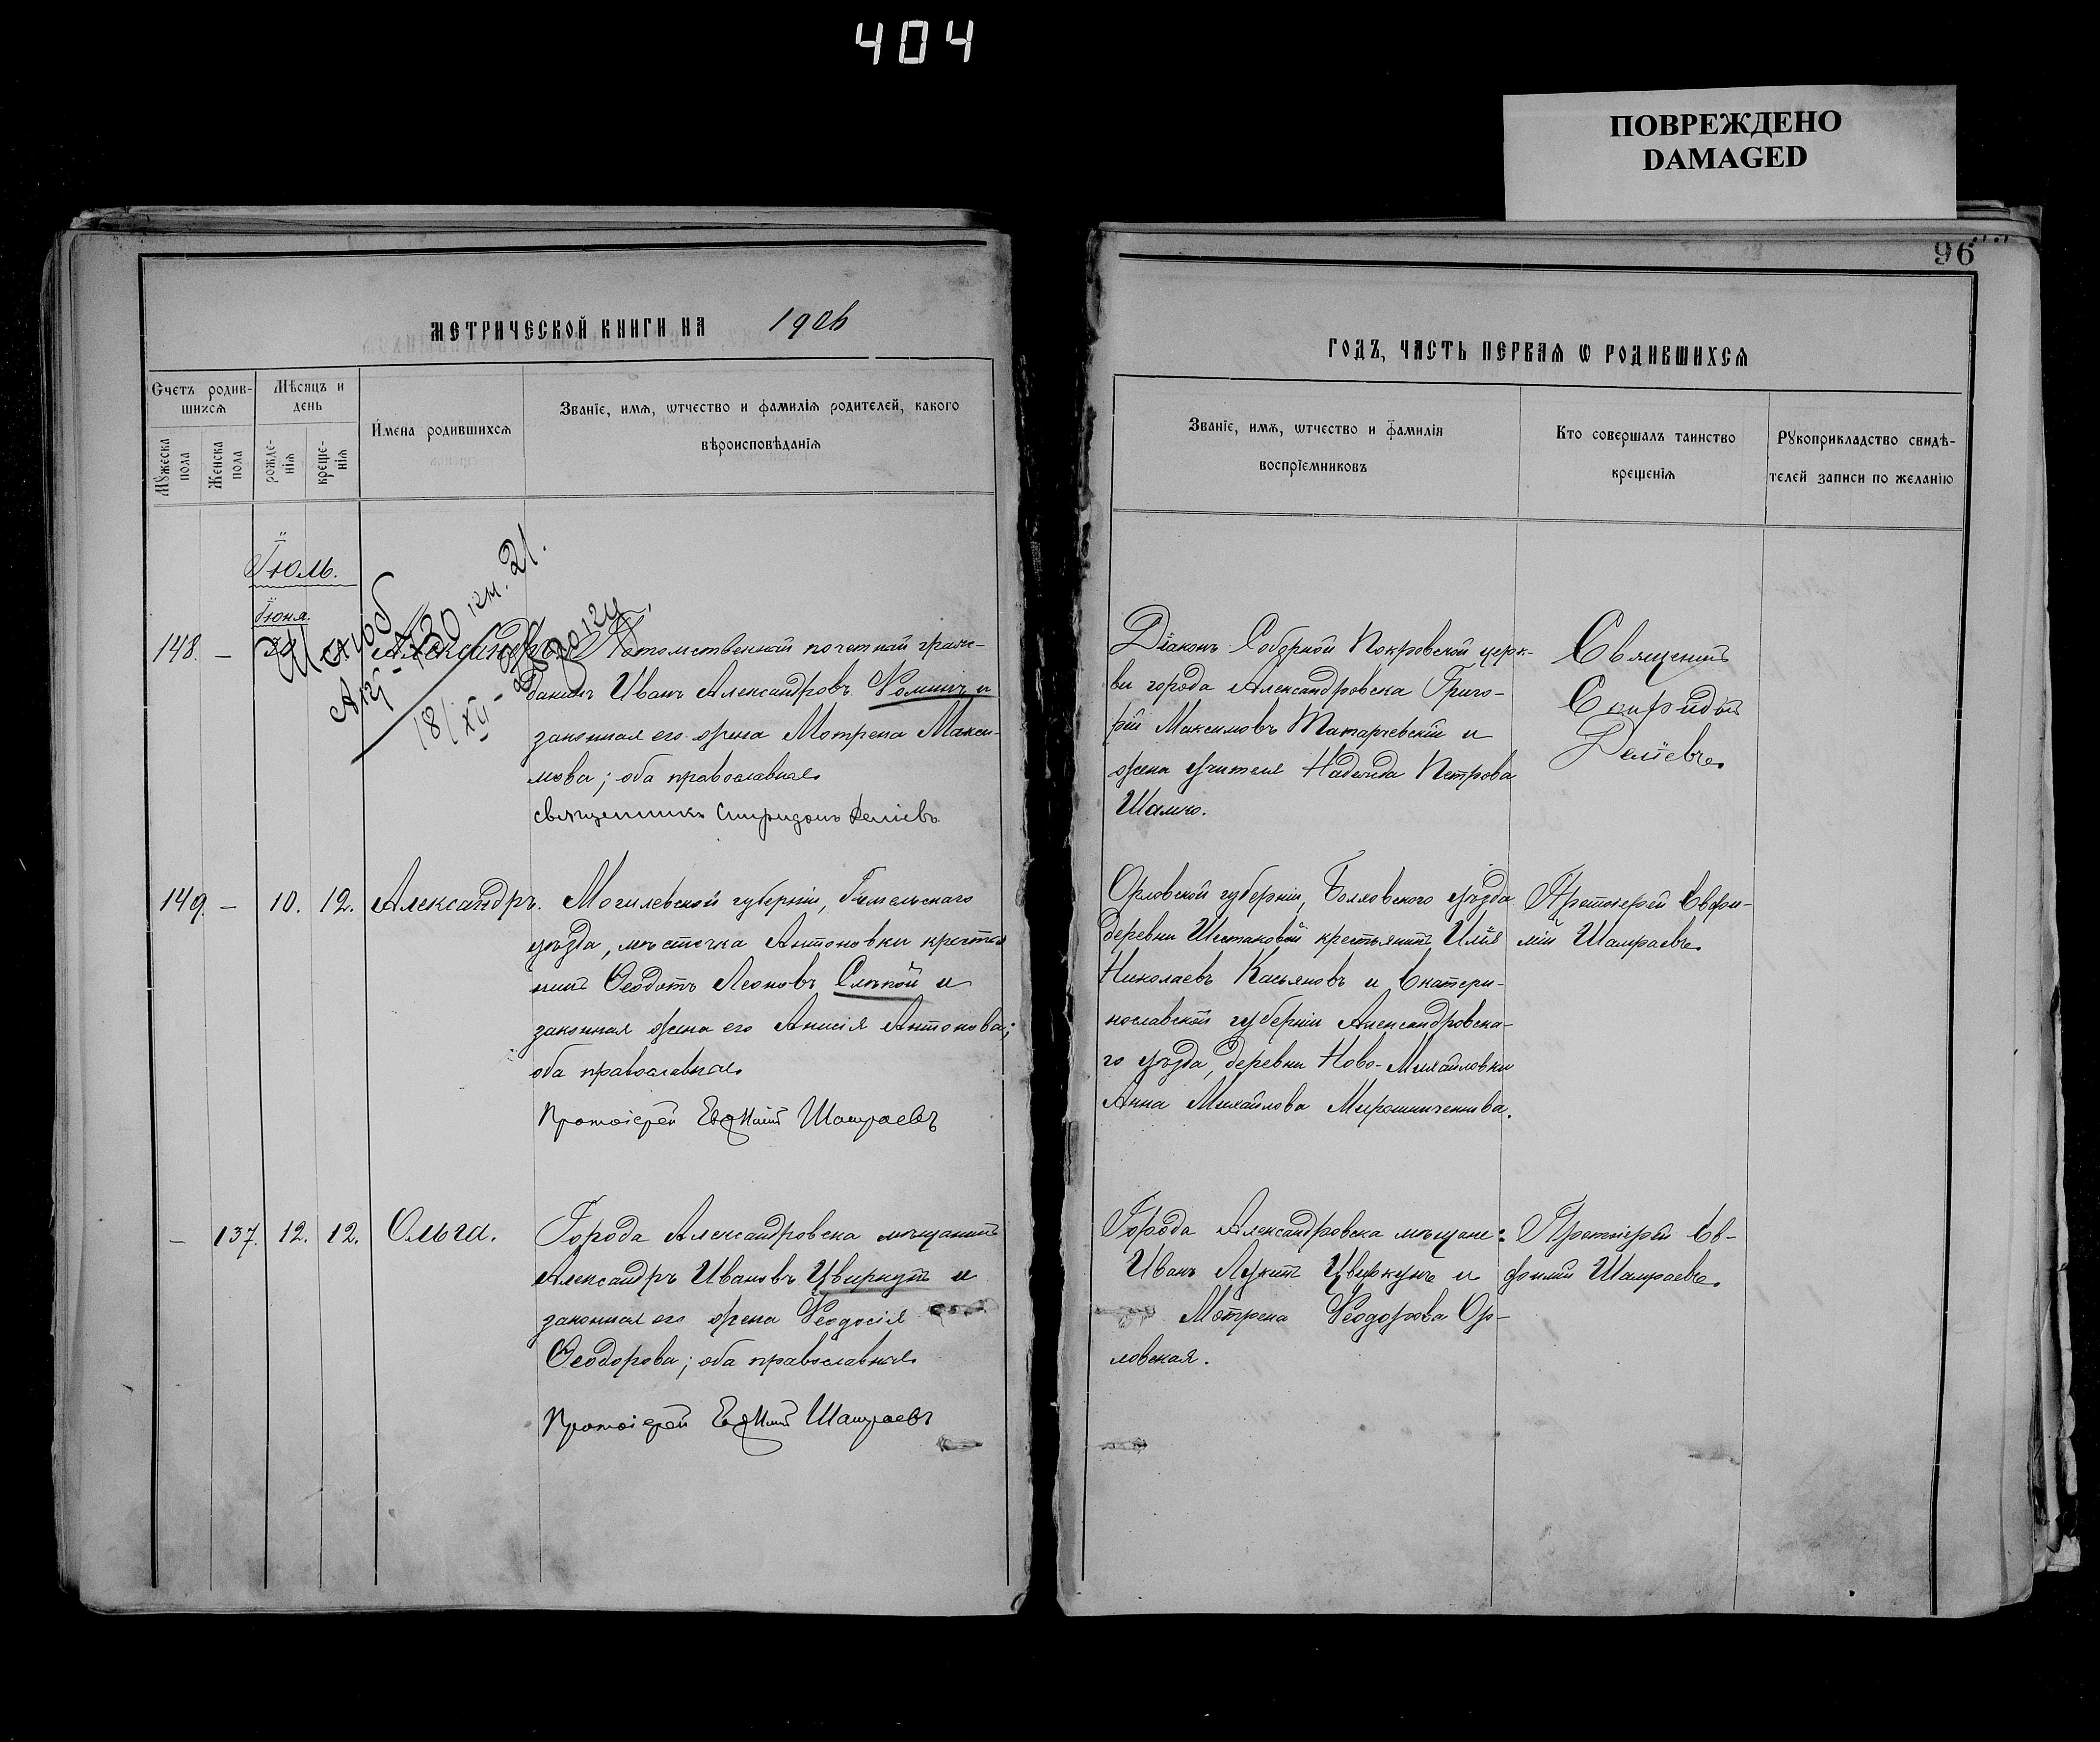 404
ПОВРЕЖДЕНО
DAMAGED
96
МЕТРИЧЕСКОЙ КНИГИ НА 1906
ГОДЪ, ЧАСТЬ ПЕРВАЯ Ѡ РОДИВШИХСЯ
Счетъ родив-
шихся
Мѣсяцъ и
день
Мужеска
пола
Женска
пола
рожде-
нія
креще-
нія
Имена родившихся
Званіе, имя, ѡтчество и фамилія родителей, какого
вѣроисповѣданія
Званіе, имя, ѡтчество и фамилія
воспріемниковъ
Кто совершалъ таинство
крещенія
Рукоприкладство свидѣ-
телей записи по желанію
Іюль.
Іюня.
148. — Александръ. Потомственный почетный граж-
данинъ Иванъ Александровъ Ѳоминъ и
законная его жена Мотрена Макси-
мова; оба православные
священникъ Спиридонъ Деліевъ
Діаконъ Соборной Покровской церк-
ви города Александровска Григо-
рій Максимовъ Татарчевскій и
жена учителя Надежда Петрова
Шамло.
Священникъ
Спиридонъ
Деліевъ
149. — 10. 12. Александръ. Могилевской губерніи, Гомельскаго
уѣзда, мѣстечка Антоновки крестья
нинъ Ѳеодотъ Леоновъ Слѣпой и
законная жена его Анисія Антонова;
оба православные
Протоіерей Евѳимій Шамраевъ
Орловской губерніи, Болховского уѣзда
деревни Шестаковой крестьянинъ Илія
Николаевъ Касьяновъ и Екатери-
нославской губерніи Александровска-
го уѣзда, деревни Ново-Михайловки
Анна Михайлова Мирошниченкова.
Протоіерей Евфи-
мій Шамраевъ
— 137. 12. 12. Ольга. Города Александровска мѣщанинъ
Александръ Ивановъ Цвиркунъ и
законная его жена Ѳеодосія
Ѳеодорова; оба православные
Протоіерей Евѳимій Шамраевъ
Города Александровска мѣщане:
Иванъ Лукинъ Цвиркунъ и
Мотрена Ѳеодорова Ор-
ловская.
Протоіерей Ев-
фимій Шамраевъ